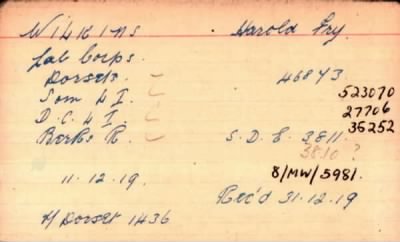 WILKINS Harold Fry.
Lab Corps.
Dorsets. 46873
Som L I. 523070
D. C. L I. 27706
Berks R. S.D.E. 3811. 35252
3810 ?
11.12.19. 8/MW/5981.
Rec'd 31.12.19
H/Dorset 1436